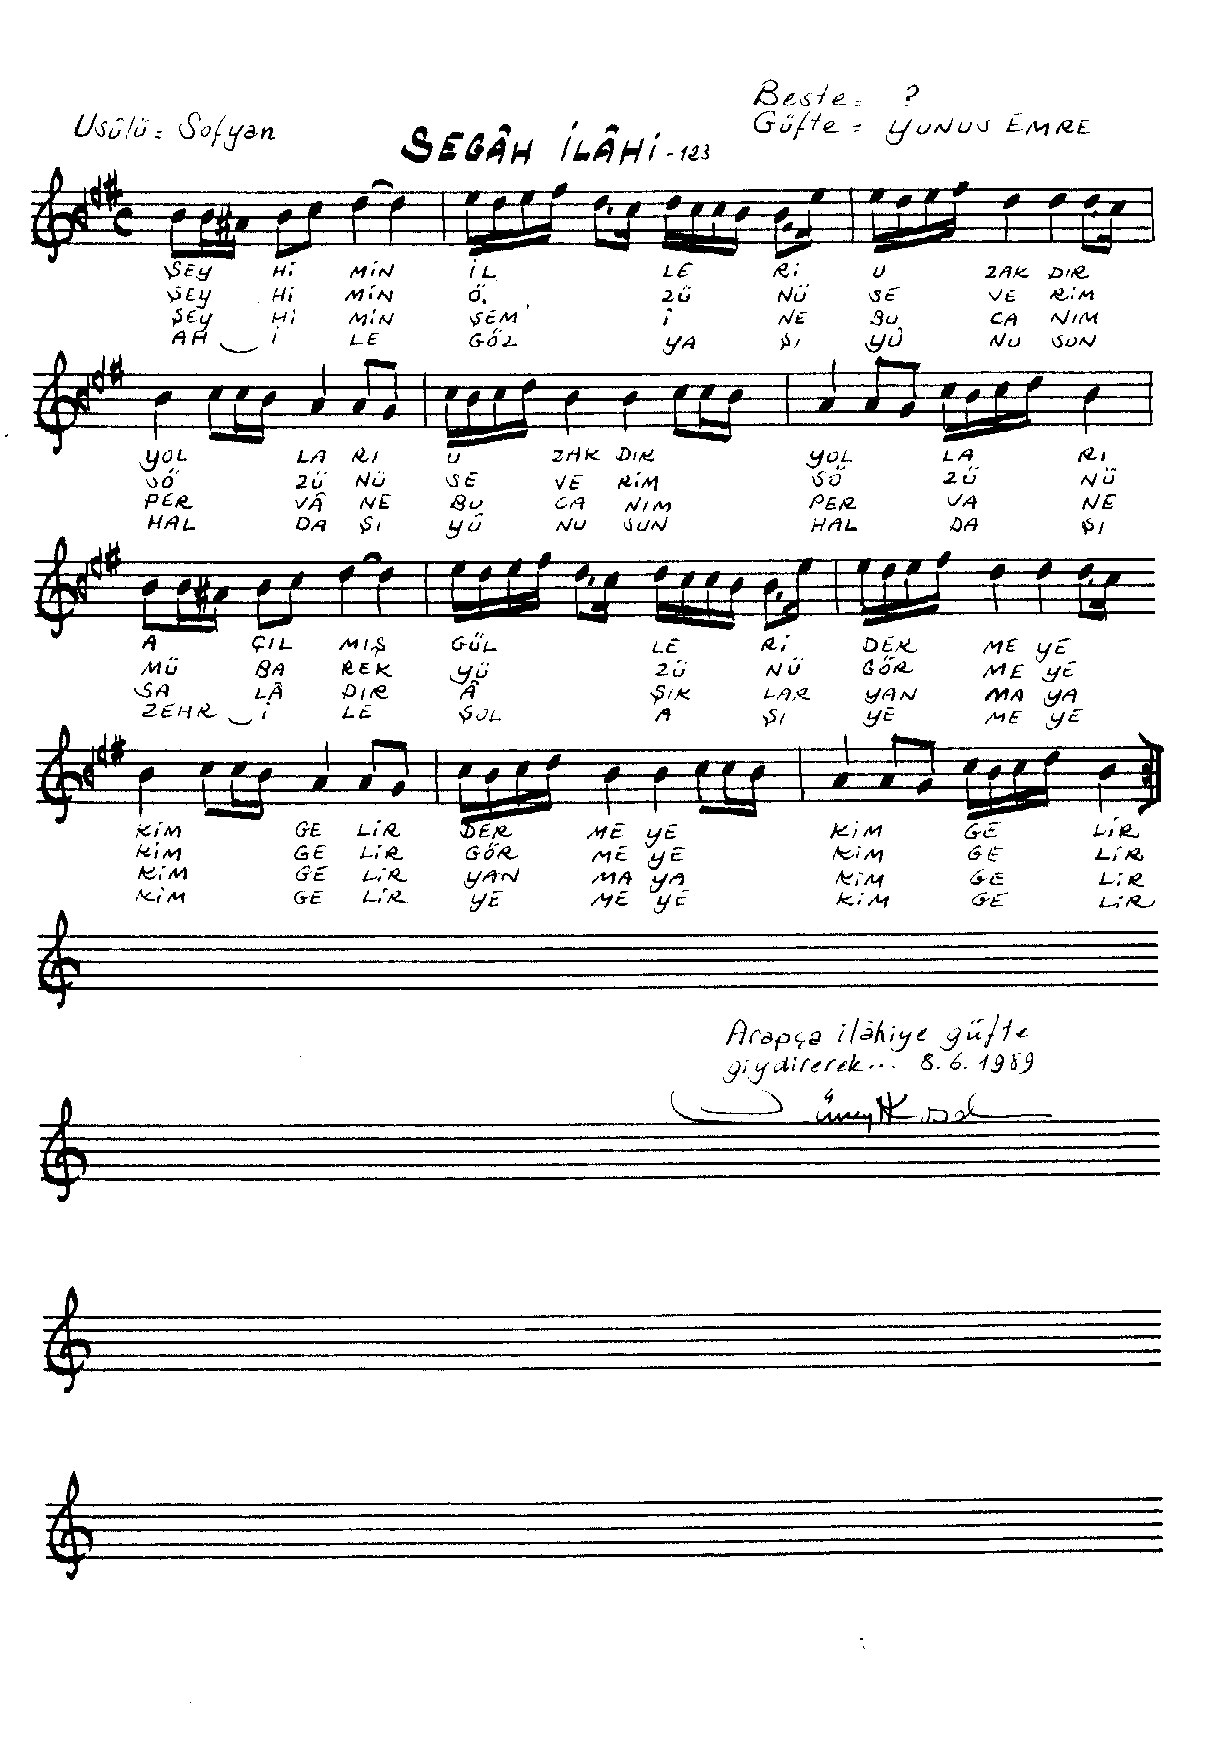 Beste = ?
Usûlü = Sofyan
Güfte = YUNUS EMRE
SEGÂH İLÂHİ - 123
ŞEY Hİ MİN İL LE Rİ U ZAK DIR
ŞEY Hİ MİN Ö. ZÜ NÜ SE VE RİM
ŞEY Hİ MİN ŞEM' İ NE BU CA NIM
AH İ LE GÖZ YA ŞI YÛ NU SUN
YOL LA RI U ZAK DIR YOL LA RI
SÖ ZÜ NÜ SE VE RİM SÖ ZÜ NÜ
PER VÂ NE BU CA NIM PER VA NE
HAL DA ŞI YÛ NU SUN HAL DA ŞI
A ÇIL MIŞ GÜL LE Rİ DER ME YE
MÜ BA REK YÜ ZÜ NÜ GÖR ME YE
SA LÂ DIR Â ŞIK LAR YAN MA YA
ZEHR İ LE ŞOL A ŞI YE ME YE
KİM GE LİR DER ME YE KİM GE LİR
KİM GE LİR GÖR ME YE KİM GE LİR
KİM GE LİR YAN MA YA KİM GE LİR
KİM GE LİR YE ME YE KİM GE LİR
Arapça ilâhiye güfte
giydirerek... 8.6.1989